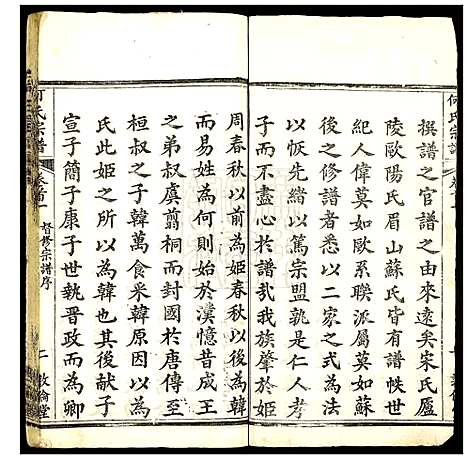 何氏宗譜
撰譜之官譜之由來遠矣宋氏廬
陵歐陽氏眉山蘇氏皆有譜帙世
紀人偉莫如歐系聯派屬莫如蘇
後之修譜者悉以二家之式為法
以恢先緒以篤宗盟孰是仁人孝
子而不盡心於譜哉我族肇於姬
周春秋以前為姬春秋以後為韓
而易姓為何則始於漢憶昔成王
之弟叔虞翦桐而封國於唐傳至
桓叔之子韓萬食采韓原因以為
氏此姬之所以為韓也其後献子
宣子簡子康子世執晋政而為卿
何氏宗譜
卷首
督修宗譜序
二
敦倫堂